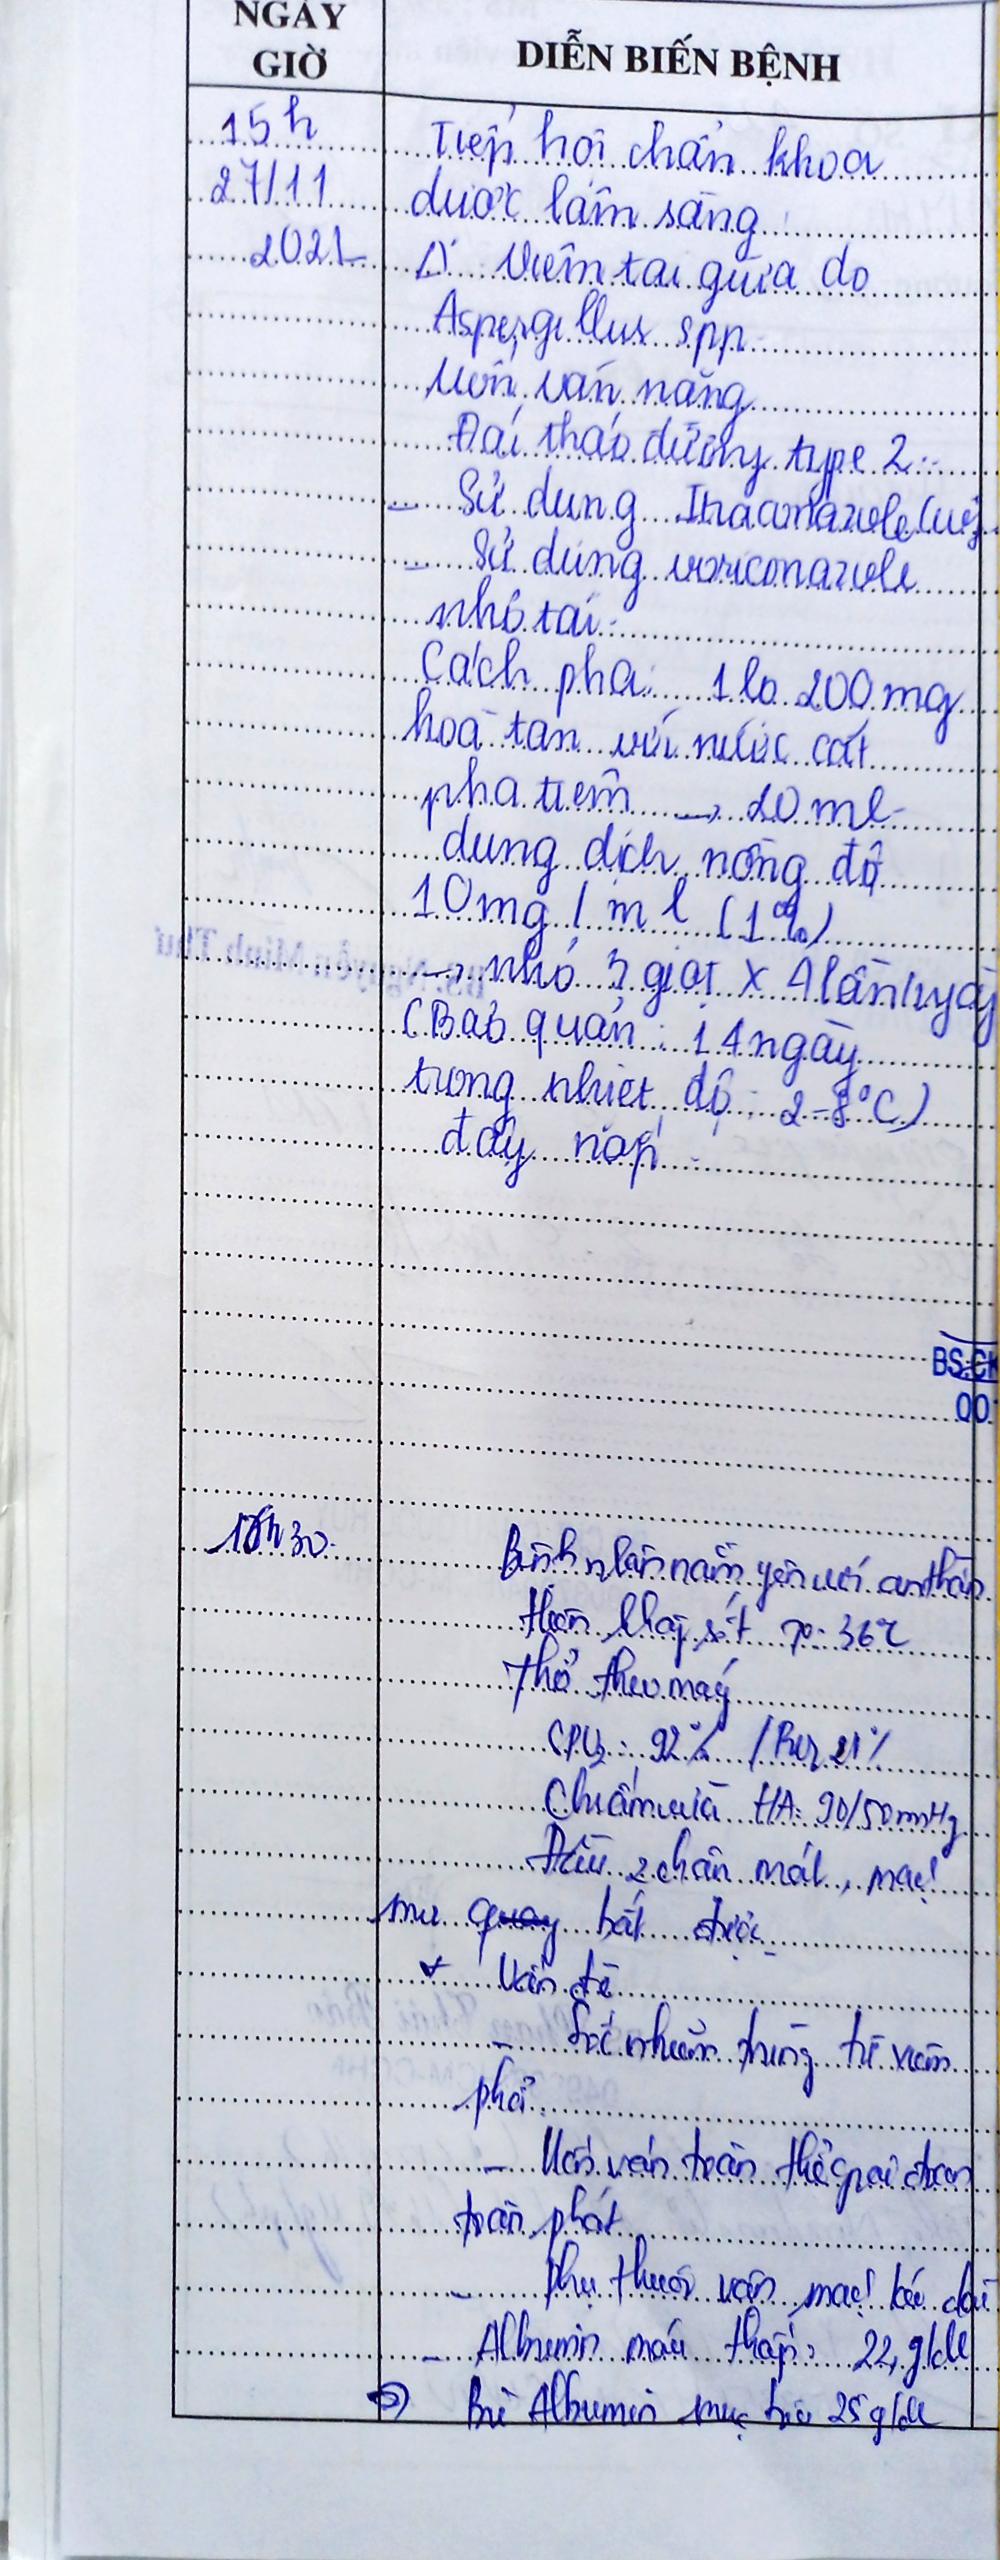 NGÀY
GIỜ
DIỄN BIẾN BỆNH
15h
27/11
2021
Tiếp hội chẩn khoa
dược lâm sàng:
Δ: Viêm tai giữa do
Aspergillus spp
Uốn ván nặng
Đái tháo đường type 2
- Sử dụng Itraconazole (uống)
- Sử dụng voriconazole
nhỏ tai:
Cách pha: 1 lọ 200 mg
hoà tan với nước cất
pha tiêm → 20 ml
dung dịch nồng độ
10mg / ml (1%)
→ nhỏ 3 giọt x 4 lần/ngày
(Bảo quản: 14 ngày
trong nhiệt độ: 2-8°C)
đậy nắp.
BS.CK
00
16h30
Bệnh nhân nằm yên với an thần
Hiện không sốt T°: 36°C
Thở theo máy
SPO2: 92% / 21%
HA: 90/50 mmHg
2 chân mát, mạch
mu quay bắt được
+ Vấn đề
- Sốc nhiễm trùng từ viêm
phổi
- Uốn ván toàn thể giai đoạn
toàn phát
- Phụ thuộc vận mạch kéo dài
- Albumin máu thấp: 22, g/dl
⇒ Bù Albumin mục tiêu 25 g/dl